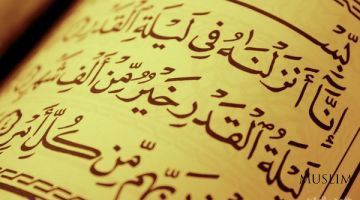 إِنَّا أَنزَلْنَٰهُ فِى لَيْلَةِ ٱلْقَدْرِ
لَيْلَةُ ٱلْقَدْرِ خَيْرٌ مِّنْ أَلْفِ شَهْرٍ
رَبِّهِم مِّن كُلِّ أَمْرٍ
MUSLIM